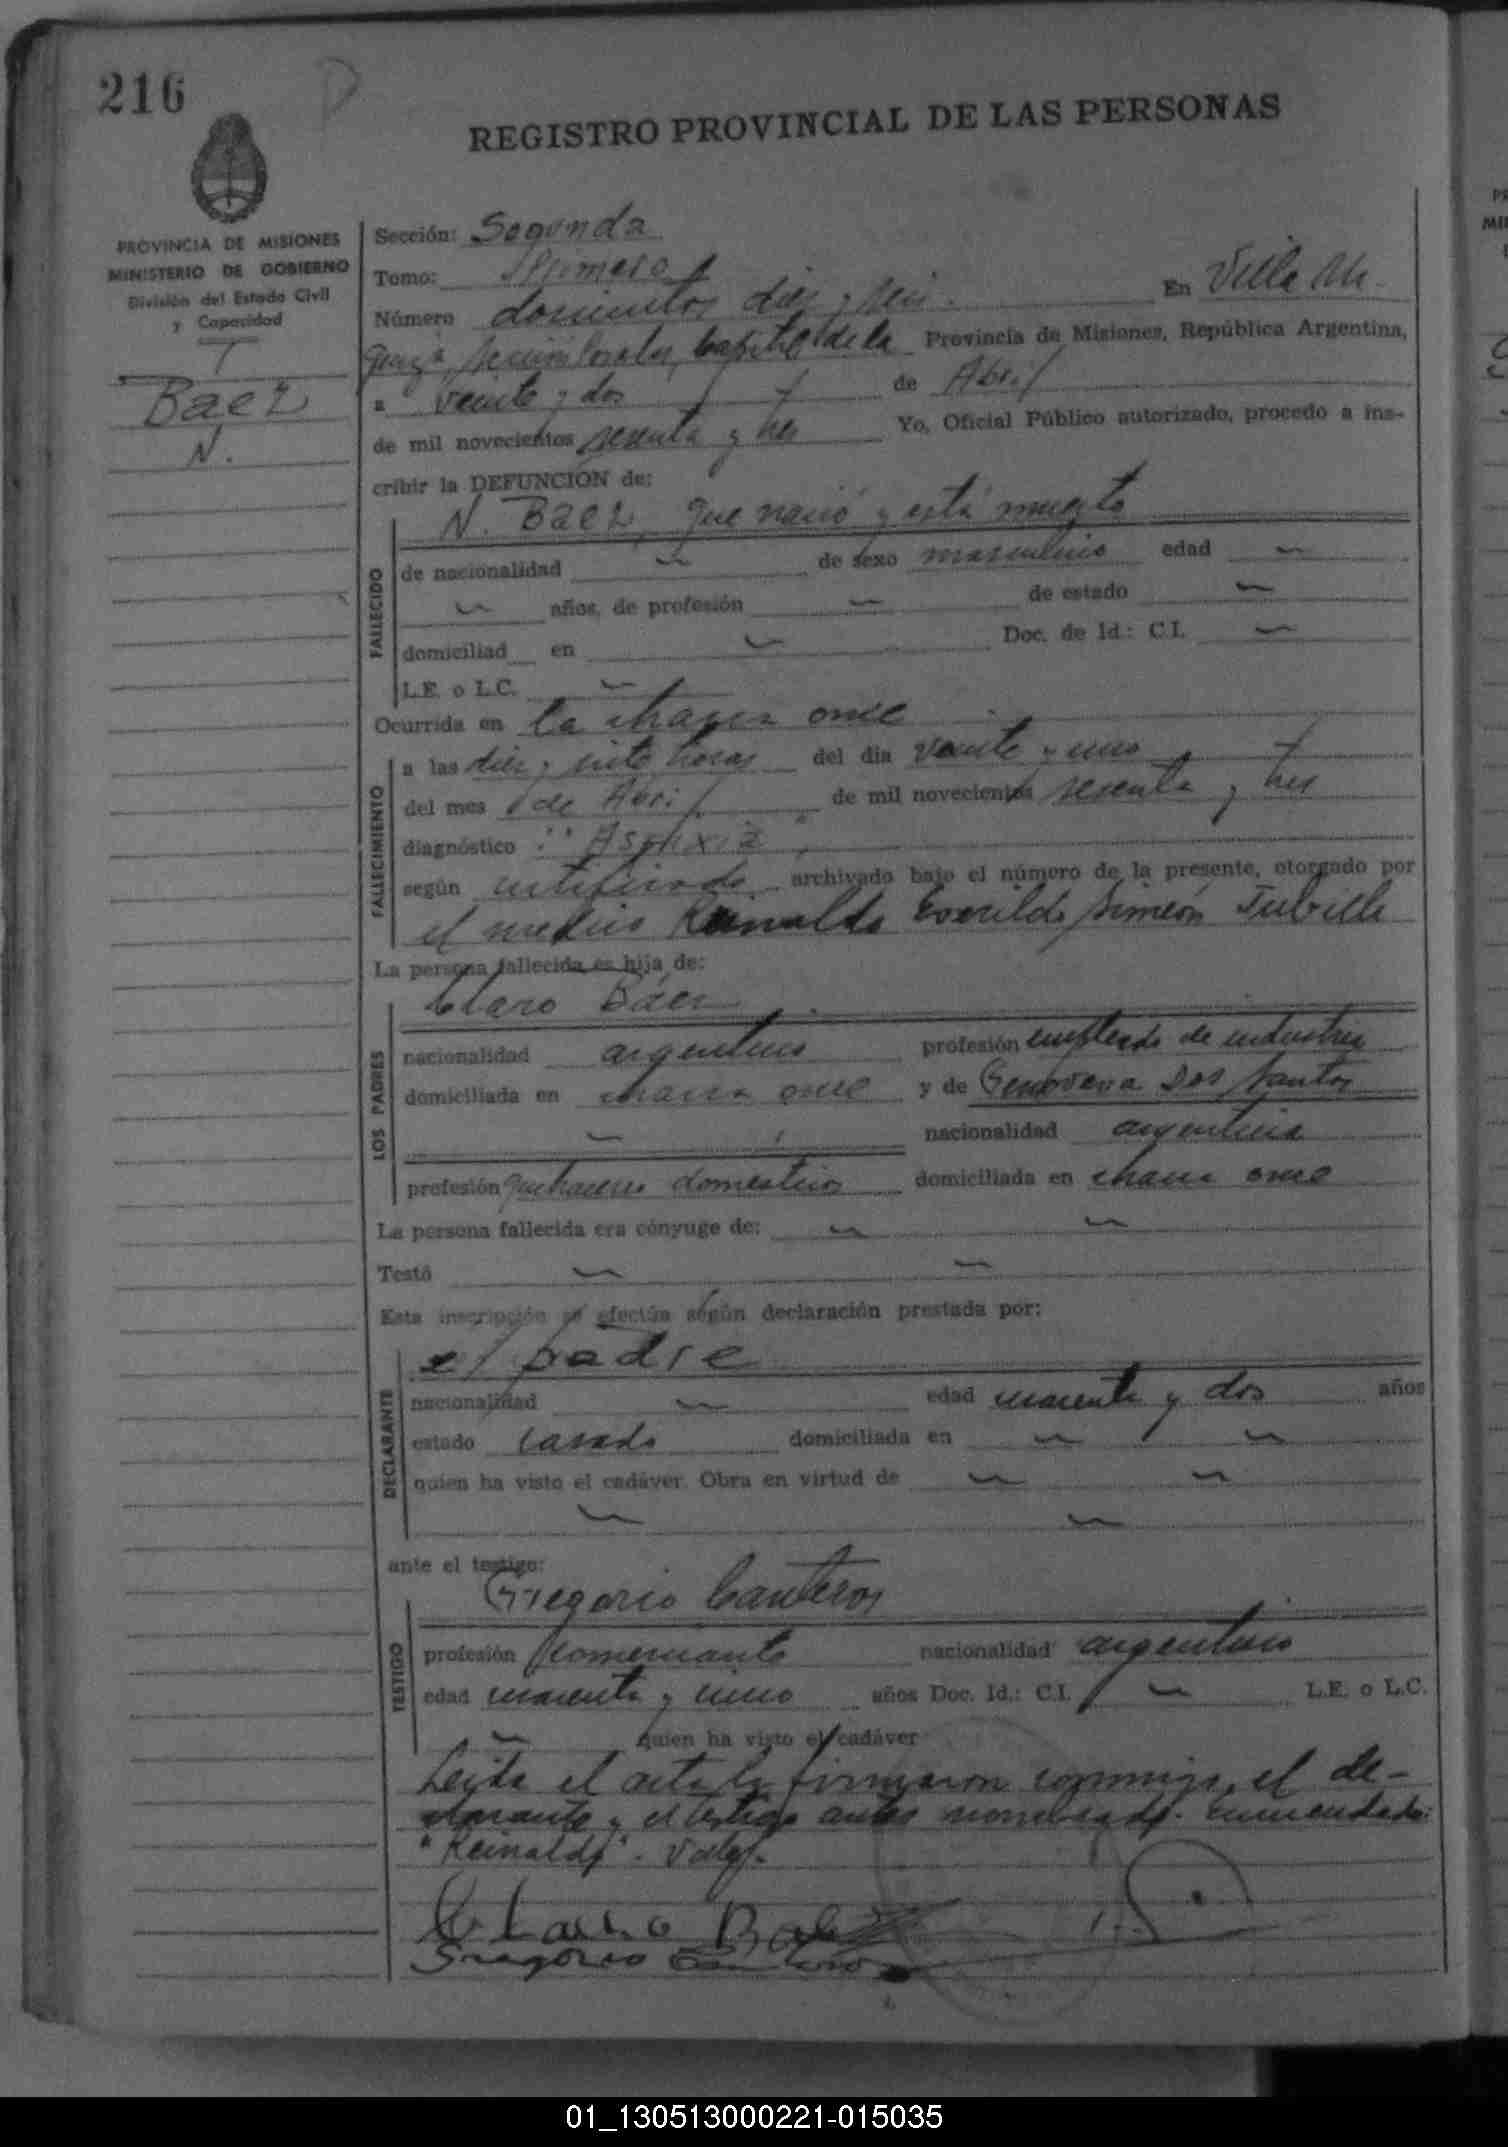 216
REGISTRO PROVINCIAL DE LAS PERSONAS
PROVINCIA DE MISIONES
MINISTERIO DE GOBIERNO
División del Estado Civil
y Capacidad
Baez
N.
Sección: Segunda
Tomo: Primero
Número doscientos diez y seis. En Villa Ur-
quiza, sección Posadas, Capital de la Provincia de Misiones, República Argentina,
a veinte y dos de Abril
de mil novecientos sesenta y tres Yo, Oficial Público autorizado, procedo a ins-
cribir la DEFUNCION de:
N. Baez, que nació y está muerto
FALLECIDO
de nacionalidad de sexo masculino edad
años, de profesión de estado
domiciliad en Doc. de Id.: C.I.
L.E. o L.C.
Ocurrida en la chacra once
FALLECIMIENTO
a las diez y siete horas del día veinte y uno
del mes de Abril de mil novecientos sesenta y tres
diagnóstico: "Asfixia"
según certificado archivado bajo el número de la presente, otorgado por
el médico Reinaldo Simeón
La persona fallecida es hija de:
Claro Báez
LOS PADRES
nacionalidad argentino profesión empleado de industria
domiciliada en chacra once y de Genoveva Dos Santos
nacionalidad argentina
profesión quehaceres domésticos domiciliada en chacra once
La persona fallecida era cónyuge de:
Testó
Esta inscripción se efectúa según declaración prestada por:
el padre
DECLARANTE
nacionalidad edad cuarenta y dos años
estado casado domiciliada en
quien ha visto el cadáver. Obra en virtud de
ante el testigo:
Gregorio Canteros
TESTIGO
profesión comerciante nacionalidad argentino
edad cuarenta y cinco años Doc. Id.: C.I. L.E. o L.C.
quien ha visto el cadáver
Leída el acta la firmaron conmigo, el de-
clarante y el testigo antes nombrado. Enmendado:
"Reinaldo". Vale.
Claro Baez
Gregorio Canteros
01_130513000221-015035